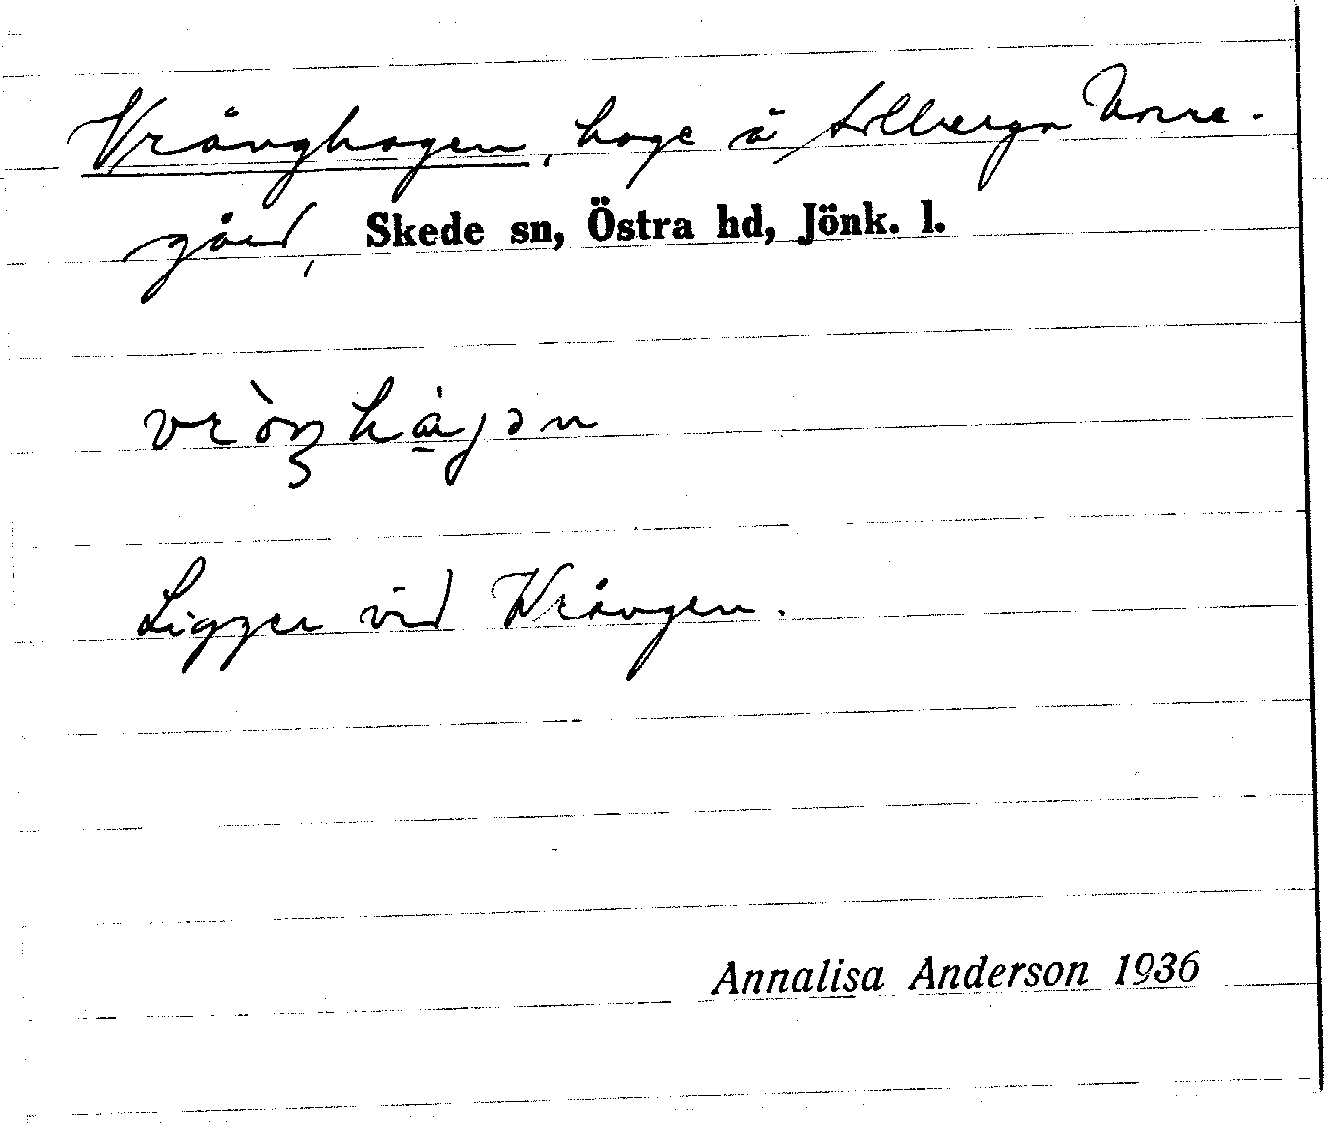 Vränghagen, hage å Solberga Norre-
gård, Skede sn, Östra hd, Jönk. l.
vrò̀ŋhàgən
Ligger vid Vrången.
Annalisa Anderson 1936